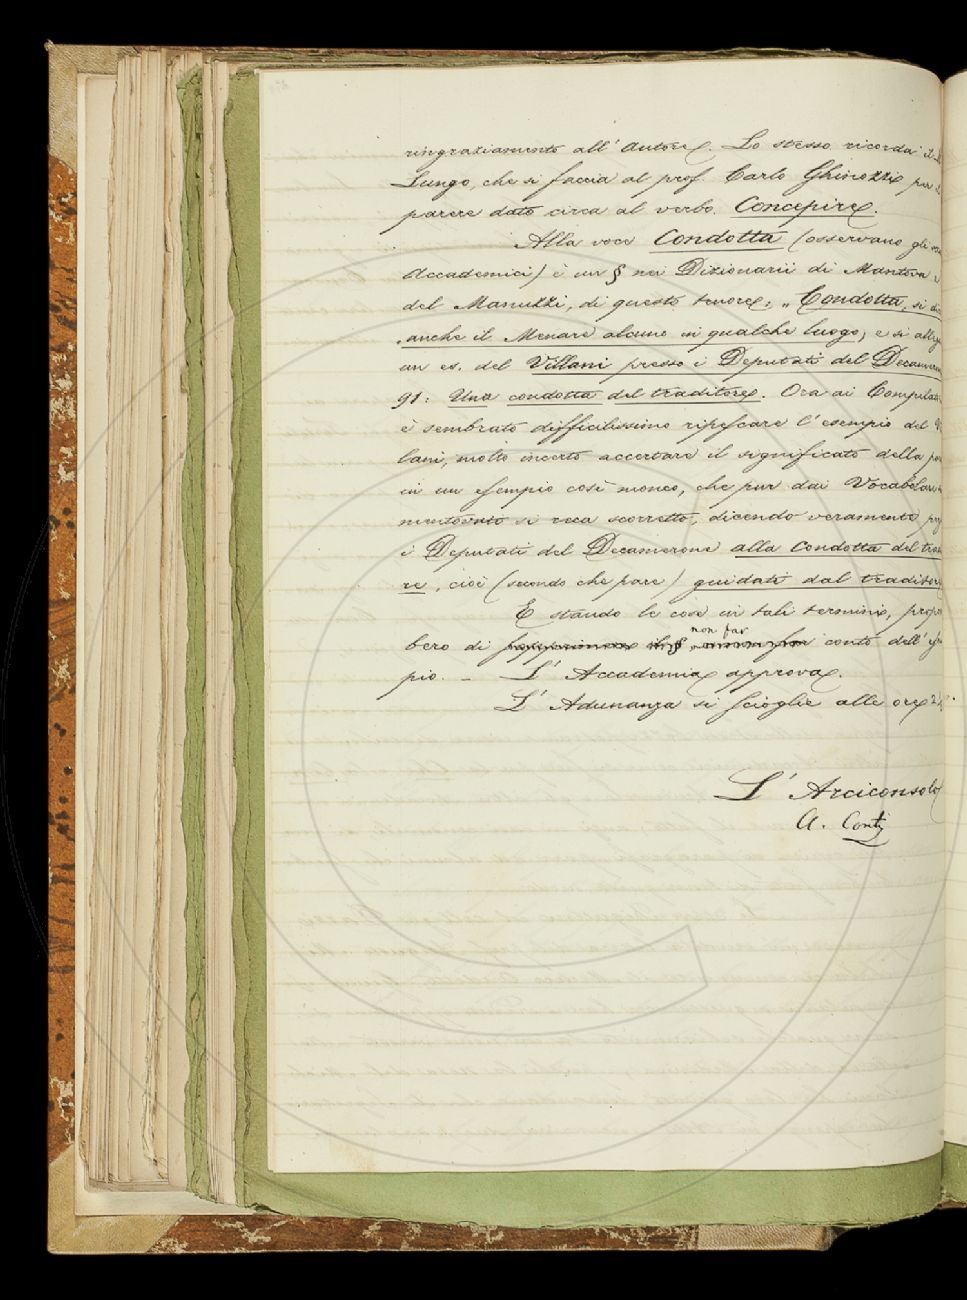 ringraziamento all' Autore. Lo stesso ricorda il
Lungo, che si faccia al prof. Carlo Ghinozzi per
parere dato circa al verbo. Concepire.
Alla voce Condotta (osservano gli
Accademici) è un § nei Dizionarii di Mantova e
del Manuzzi, di questo tenore: „ Condotta, si di
anche il Menare alcuno in qualche luogo; e si alleg
un es. del Villani presso i Deputati del Decamer
91: Una condotta del traditore. Ora ai Compilat
è sembrato difficilissimo ripescare l' esempio del V
lani, molto incerto accertare il significato della pa
in un esempio così monco, che pur dai Vocabolari
mentovato si reca scorretto, dicendo veramente
i Deputati del Decamerone alla condotta del tra
re, cioè (secondo che pare) guidati dal traditor
E stando le cose in tali termini, propo
non far
bero di sopprimere il § conto dell' ese
pio. – L' Accademia approva.
L' Adunanza si scioglie alle ore 2
L' Arciconsolo
A. Conti